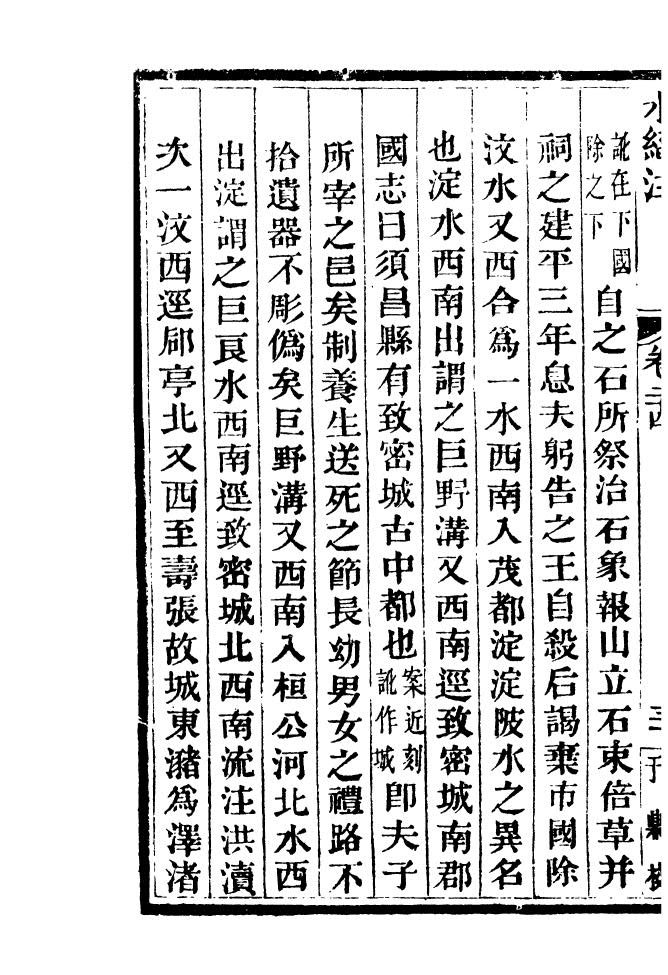 水經注 卷二十四 三一 子縣校
訛在下國除之下自之石所祭治石象報山立石束倍草并
祠之建平三年息夫躬告之王自殺后謁棄市國除
汶水又西合爲一水西南入茂都淀淀陂水之異名
也淀水西南出謂之巨野溝又西南逕致密城南郡
國志曰須昌縣有致密城古中都也案近刻訛作城卽夫子
所宰之邑矣制養生送死之節長幼男女之禮路不
拾遺器不彫僞矣巨野溝又西南入桓公河北水西
出淀謂之巨良水西南逕致密城北西南流注洪瀆
次一汶西逕郈亭北又西至壽張故城東瀦爲澤渚